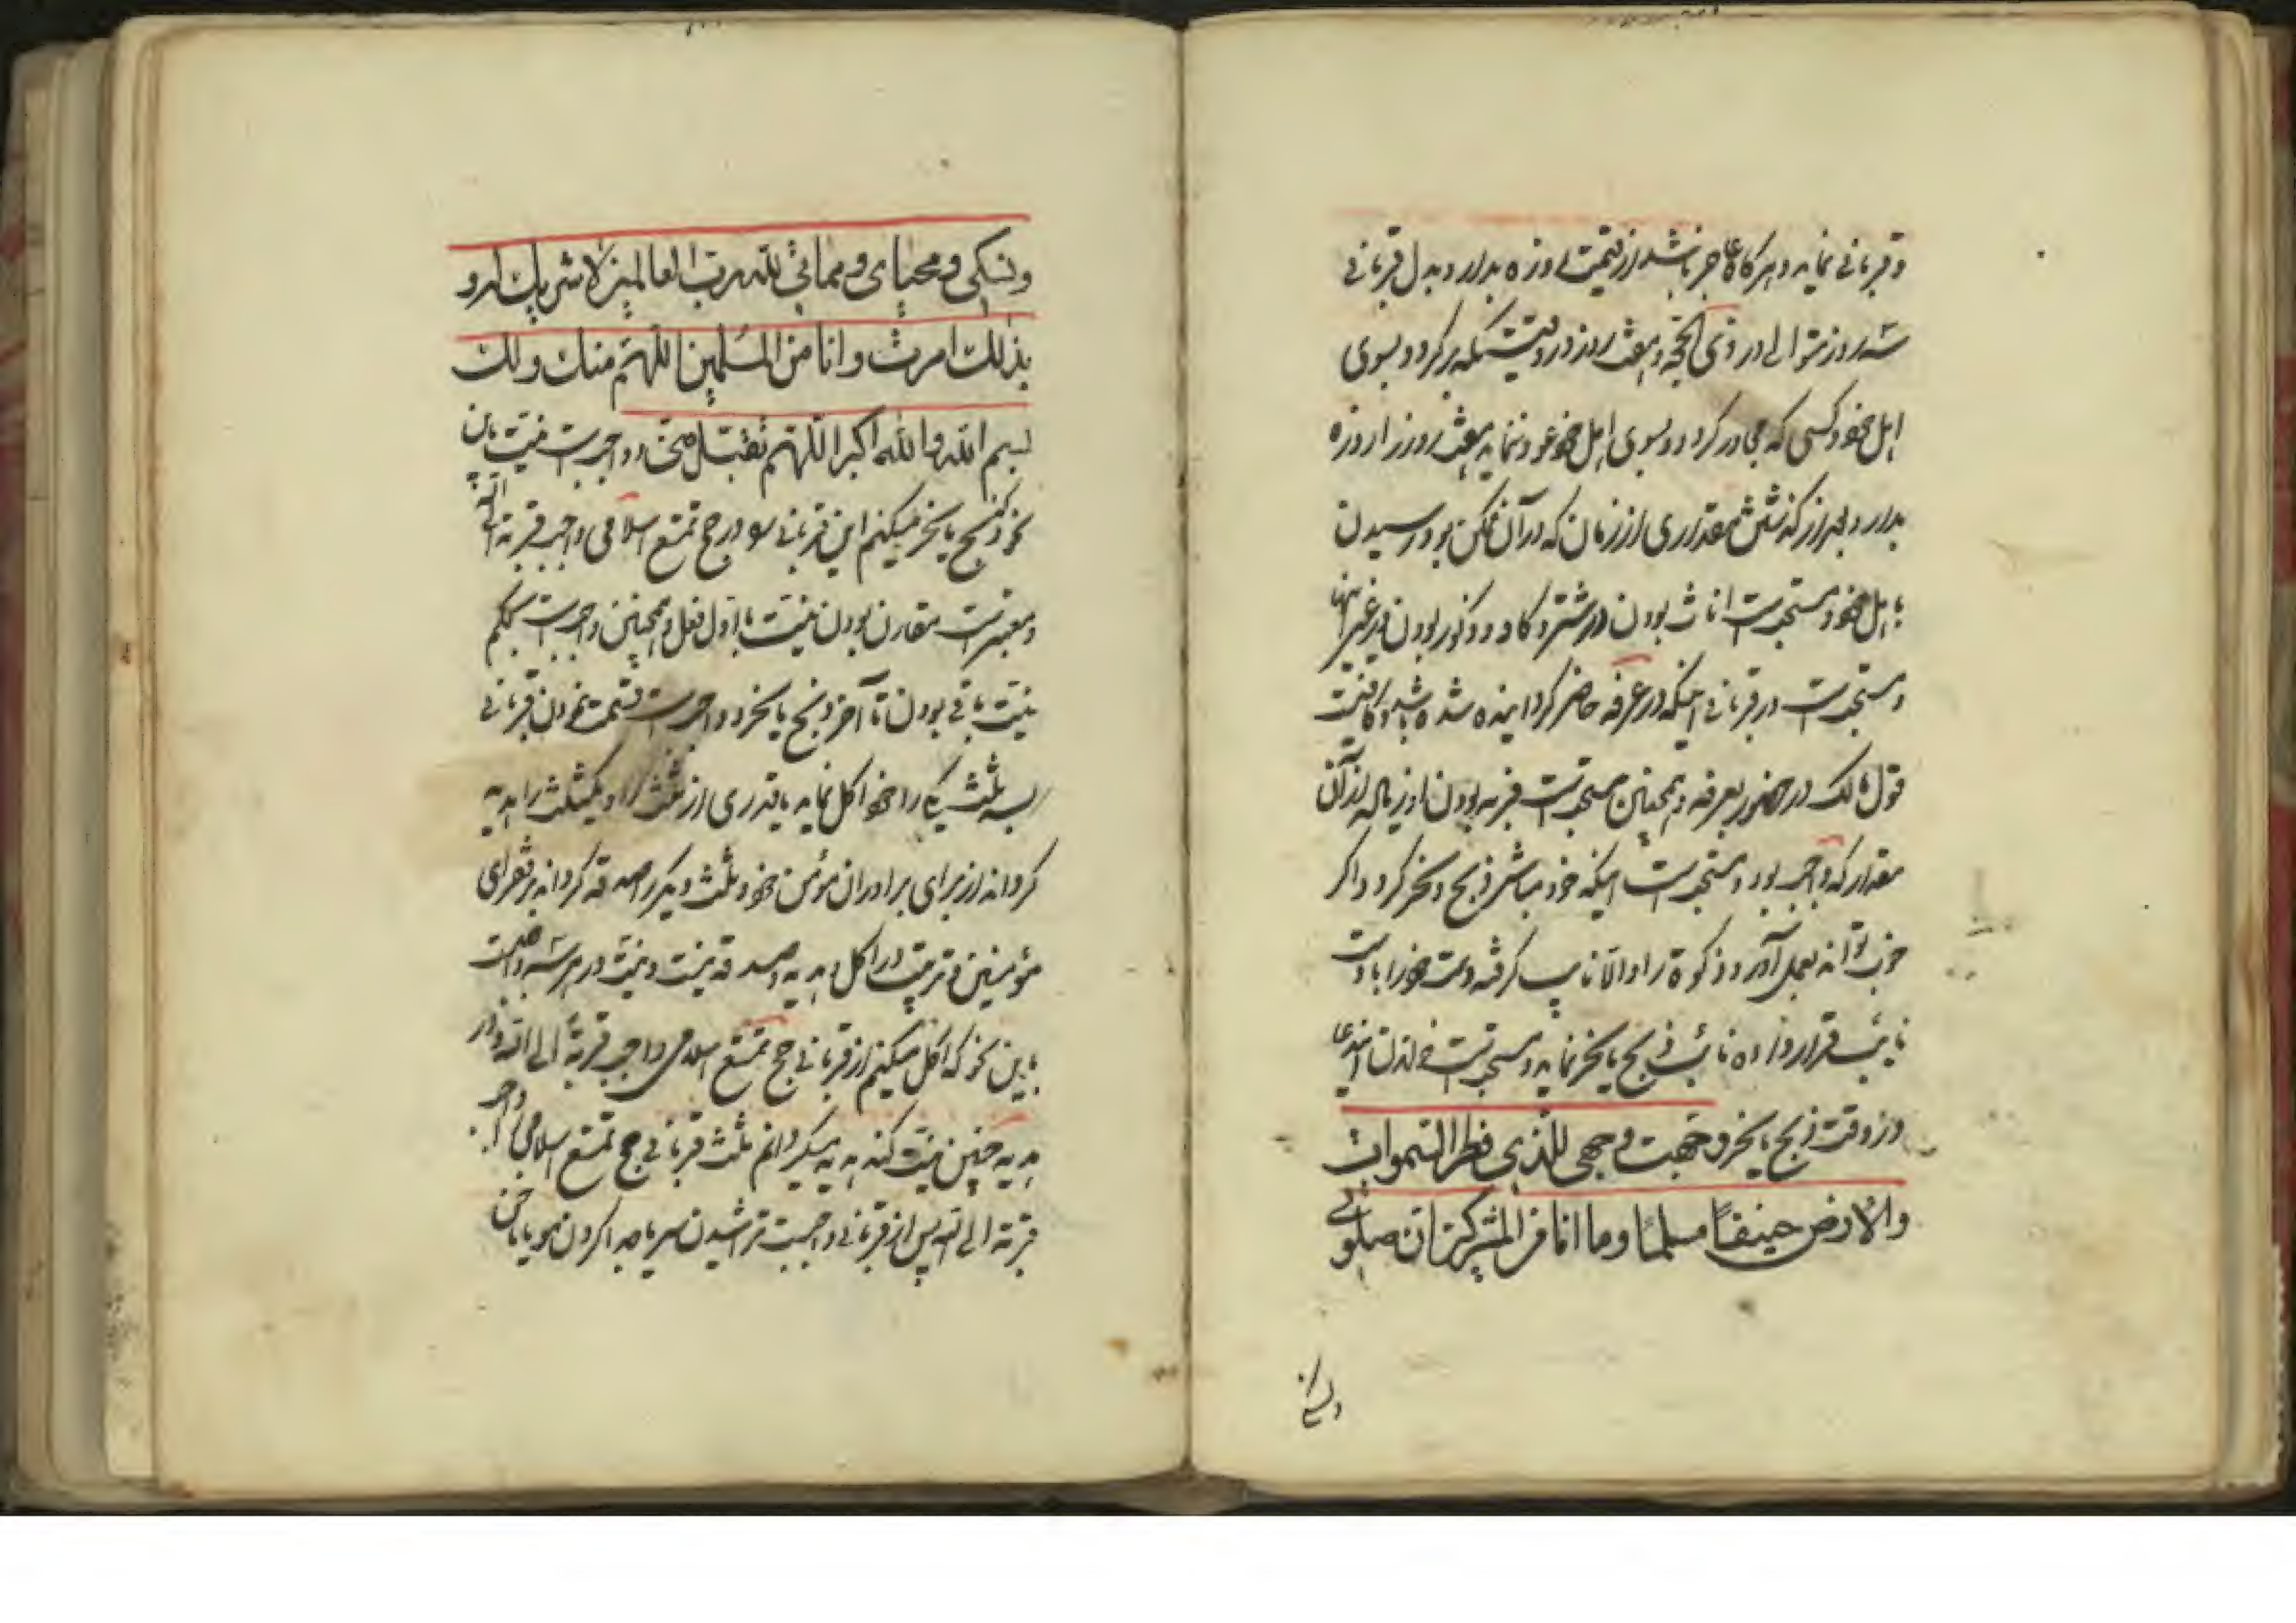 و قربانی نماید و هرگاه عاجز باشد از قیمت روزه بدارد بدل قربانی
سه روز متوالی در ذی الحجه و هفت روز در وقتیکه برگردد بسوی
اهل خود و کسی که مجاور گردد و بسوی اهل خود عود ننماید هفت روز را روزه
بدارد بعد از گذشتن مقداری از زمان که در آن ممکن بود رسیدن
باهل خود و مستحبست اناث بودن در شتر و گاو و ذکور بودن در غیر اینها
و مستحبست در قربانی اینکه در عرفه حاضر گردانیده شده باشد و کافیست
قول مالک در حضور بعرفه و همچنین مستحبست فربه بودن او زیاده از آن
مقدار که واجب بود و مستحبست اینکه خود مباشر ذبح و نحر گردد و اگر
خوب تواند بعمل آورد و ذکوة را و الا نایب گرفته دست خود را با دست
نایب قرار داده نائب ذبح یا نحر نماید و مستحبست خواندن این دعا
در وقت ذبح یا نحر وجهت وجهی للذی فطر السموات
والارض حنیفا مسلما وما انا من المشرکین ان صلوتی
ونسکی
ونسکی ومحیای ومماتی لله رب العالمین لا شریک له و
بذلک امرت وانا من المسلمین اللهم منک ولک
بسم الله والله اکبر اللهم تقبل منی و واجبست نیت باین
نحو ذبح یا نحر میکنم این قربانی را در حج تمتع اسلامی واجب قربة الی الله
و معتبرست مقارن بودن نیت باول فعل و همچنین واجبست بحکم
نیت باقی بودن تا آخر ذبح یا نحر و واجبست قسمت نمودن قربانی
بسه ثلث یکی را خود اکل نماید یا قدری از ثلث را و یکثلث را هدیه
گرداند از برای برادران مؤمن خود و ثلث دیگر را صدقه گرداند بر فقرای
مؤمنین و ترتیب در اکل و هدیه و صدقه نیست و نیت در هر سه واجبست
باین نحو که اکل میکنم از قربانی حج تمتع اسلامی واجب قربة الی الله و در
هدیه چنین نیت کند هدیه میگردانم ثلث قربانی حج تمتع اسلامی را واجب
قربة الی الله پس از قربانی واجبست تراشیدن سر یا جدا کردن مو یا ناخن